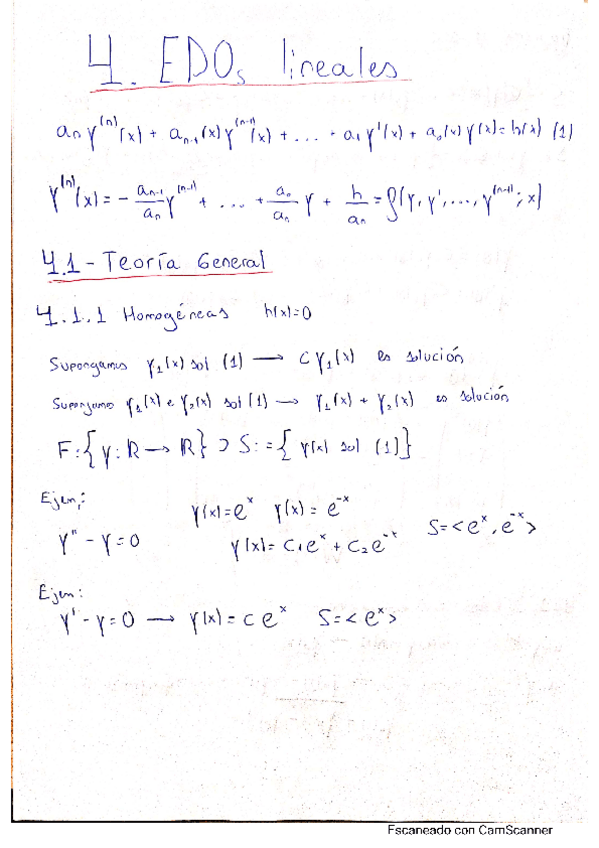 4. EDOs lineales
aₙ y⁽ⁿ⁾(x) + aₙ₋₁(x) y⁽ⁿ⁻¹⁾(x) + ... + a₁ y'(x) + a₀(x) y(x) = h(x) (1)
y⁽ⁿ⁾(x) = - aₙ₋₁/aₙ y⁽ⁿ⁻¹⁾ + ... + a₀/aₙ y + h/aₙ = f(y, y', ..., y⁽ⁿ⁻¹⁾; x)
4.1 - Teoría General
4.1.1 Homogéneas h(x)=0
Supongamos y₁(x) sol (1) → C y₁(x) es solución
Supongamo y₁(x) e y₂(x) sol (1) → y₁(x) + y₂(x) es solución
F:{y: R → R} ⊃ S:={ y(x) sol (1)}
Ejem:
y(x)=eˣ y(x) = e⁻ˣ
y'' - y = 0
y(x) = C₁eˣ + C₂e⁻ˣ
S=<eˣ, e⁻ˣ>
Ejem:
y' - y = 0 → y(x) = C eˣ S=<eˣ>
Escaneado con CamScanner